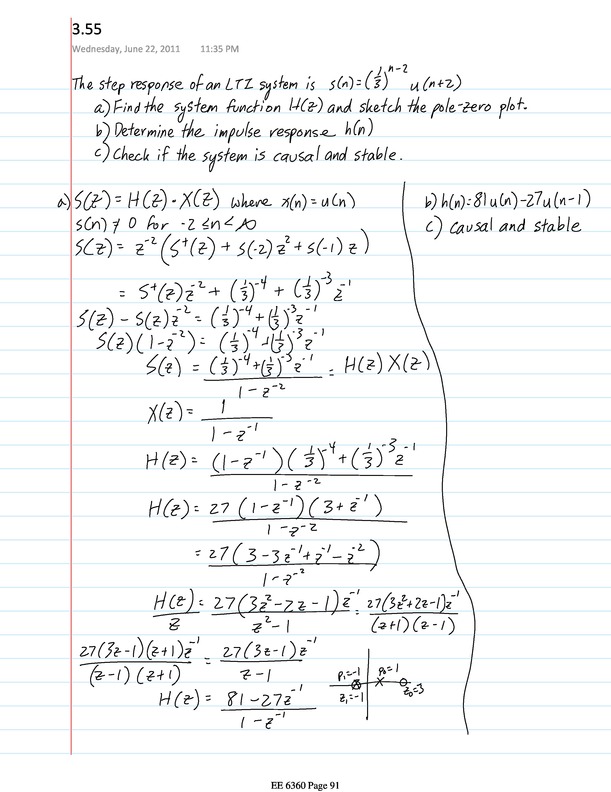 3.55
Wednesday, June 22, 2011 11:35 PM
The step response of an LTI system is s(n)=(1/3)^{n-2} u(n+2)
a) Find the system function H(z) and sketch the pole-zero plot.
b) Determine the impulse response h(n)
c) Check if the system is causal and stable.
a) S(z) = H(z)·X(z) where x(n)=u(n)
s(n) ≠ 0 for -2 ≤ n < ∞
S(z) = z^{-2} (S^+(z) + s(-2) z^2 + s(-1) z)
= S^+(z) z^{-2} + (1/3)^{-4} + (1/3)^{-3} z^{-1}
S(z) - S(z) z^{-2} = (1/3)^{-4} + (1/3)^{-3} z^{-1}
S(z)(1-z^{-2}) = (1/3)^{-4} + (1/3)^{-3} z^{-1}
S(z) = ((1/3)^{-4} + (1/3)^{-3} z^{-1}) / (1-z^{-2}) = H(z) X(z)
X(z) = 1 / (1-z^{-1})
H(z) = (1-z^{-1})(1/3)^{-4} + (1/3)^{-3} z^{-1} / (1-z^{-2})
H(z) = 27(1-z^{-1})(3+z^{-1}) / (1-z^{-2})
= 27(3-3z^{-1}+z^{-1}-z^{-2}) / (1-z^{-2})
H(z)/z = 27(3z^2-2z-1)z^{-1} / (z^2-1) = 27(3z^2+2z-1)z^{-1} / ((z+1)(z-1))
27(3z-1)(z+1)z^{-1} / ((z-1)(z+1)) = 27(3z-1)z^{-1} / (z-1)
H(z) = (81-27z^{-1}) / (1-z^{-1})
p_1=-1 p_0=1
z_1=-1 z_0=3
b) h(n)=81u(n)-27u(n-1)
c) causal and stable
EE 6360 Page 91